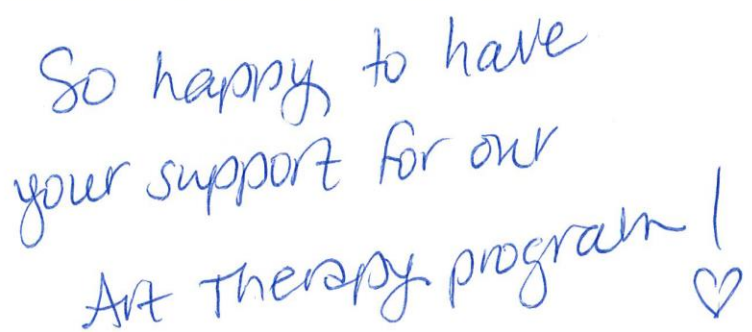 So happy to have
your support for our
Art Therapy program!
♡